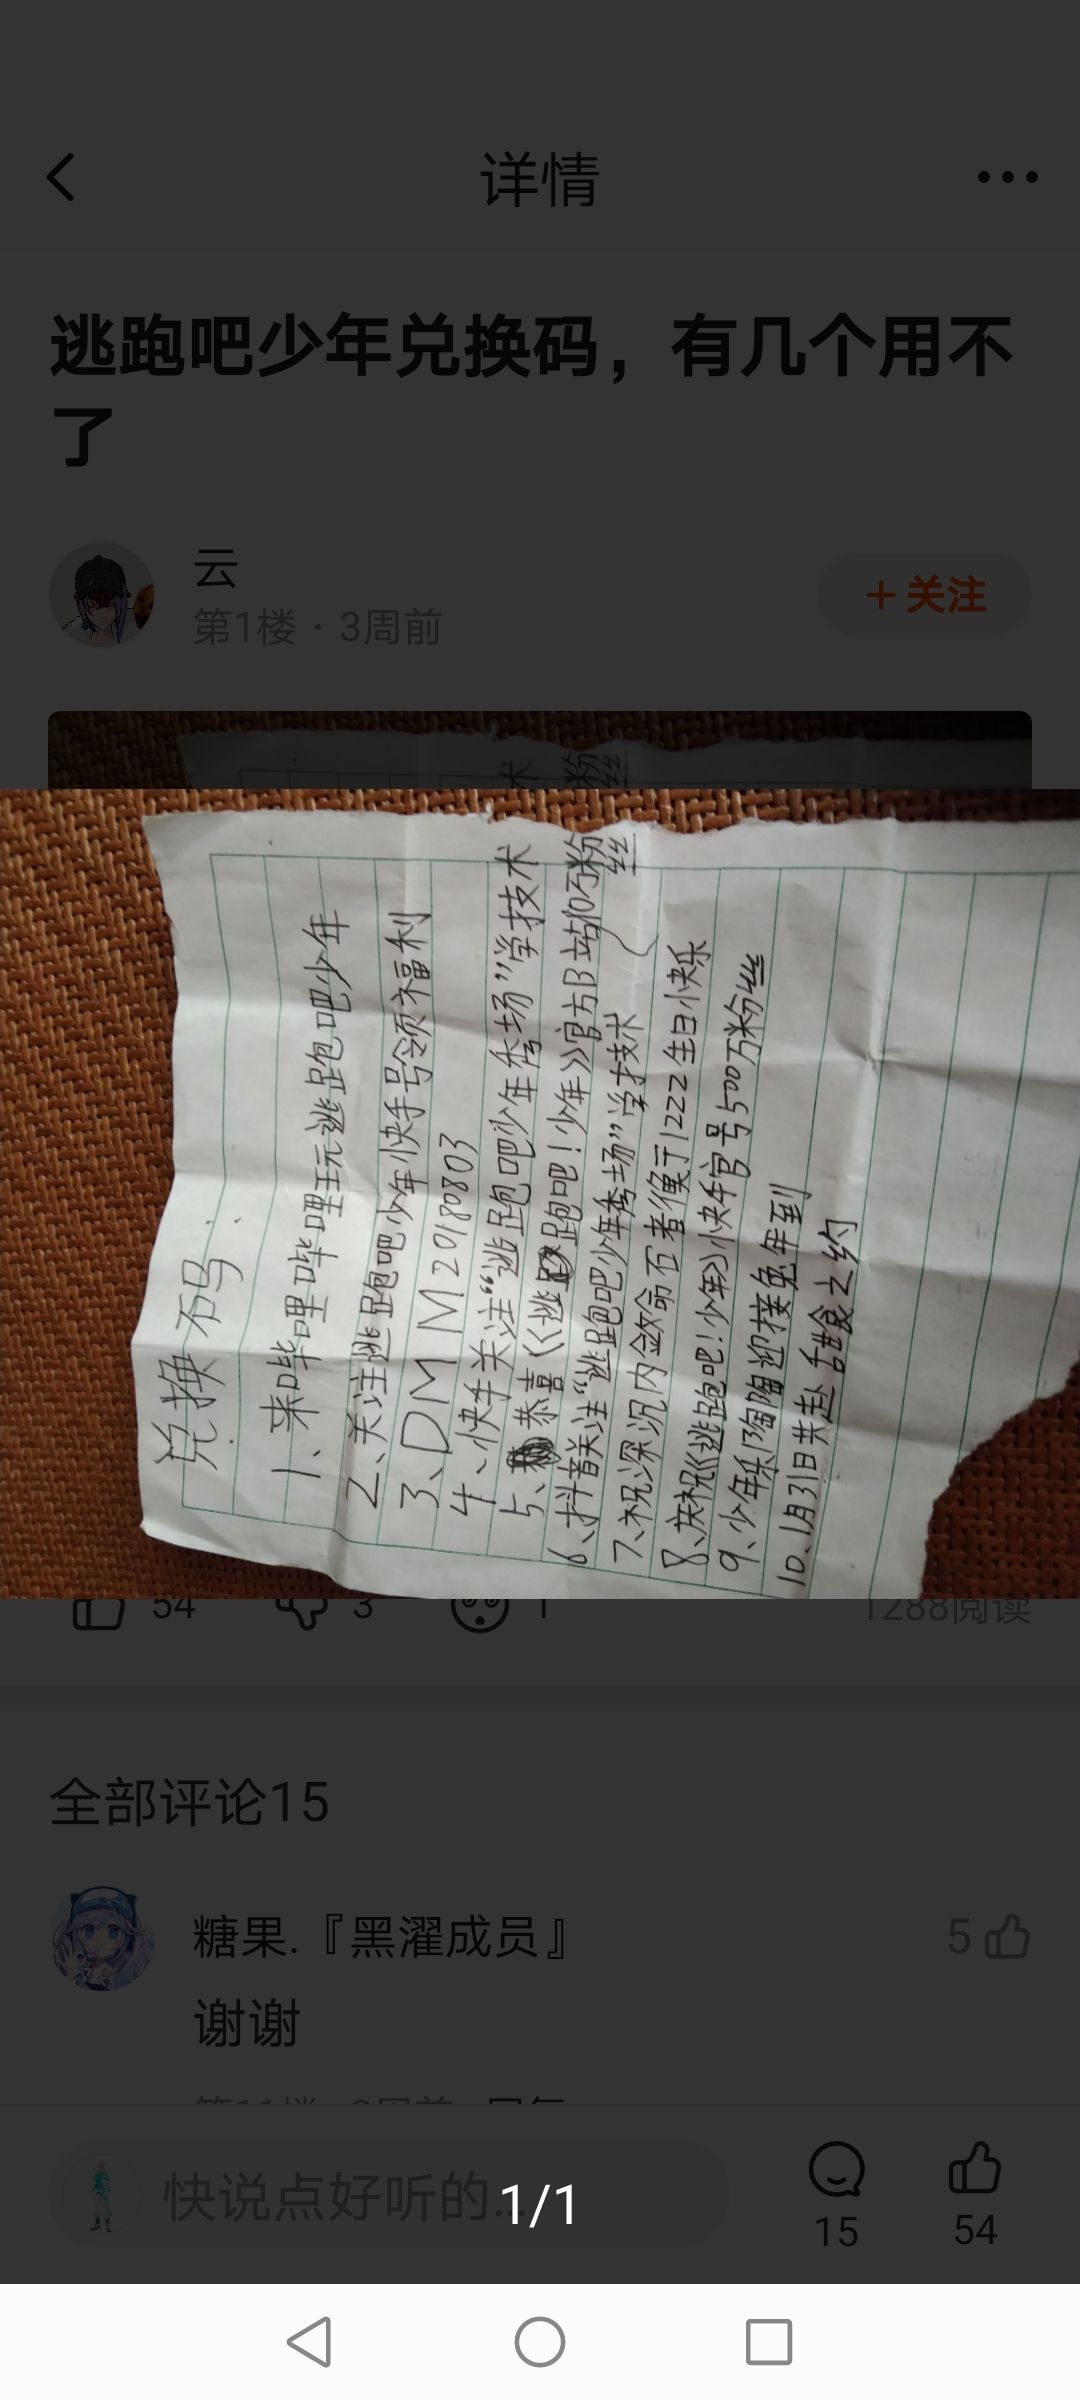 详情
逃跑吧少年兑换码，有几个用不
了
云
第1楼·3周前
+关注
术
粉
丝
兑换码
1、来哔哩哔哩玩逃跑吧少年
2、关注逃跑吧少年快手号领福利
3、DMM20180803
4、快手关注“逃跑吧少年秀场”学技术
5、恭喜《逃跑吧！少年》官方B站10万粉丝
6、抖音关注“逃跑吧少年秀场”学技术
7、祝深沉内敛命石者儇于1222生日快乐
8、庆祝《逃跑吧！少年》快手官号500万粉丝
9、少年乐陶陶迎接兔年到
10、1月31日共赴舌食之约
54
3
1
1288阅读
全部评论15
糖果.『黑濯成员』
5
谢谢
快说点好听的...
1/1
15
54